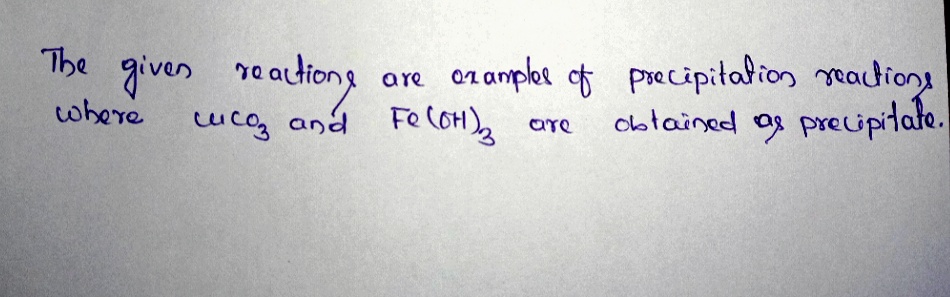 The given reactions are examples of precipitation reactions
where CuCO₃ and Fe(OH)₃ are obtained as precipitate.